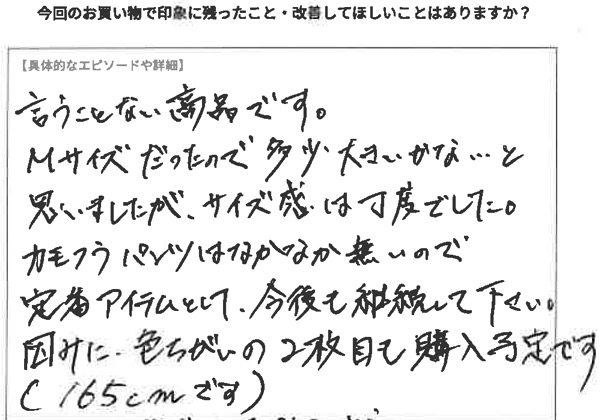 今回のお買い物で印象に残ったこと・改善してほしいことはありますか？
【具体的なエピソードや詳細】
言うことない商品です。
Mサイズだったので多少大きいかな…と
思いましたが、サイズ感は丁度でした。
カモフラパンツはなかなか無いので
定番アイテムとして、今後も継続して下さい。
因みに、色ちがいの2枚目も購入予定です
(165cmです)